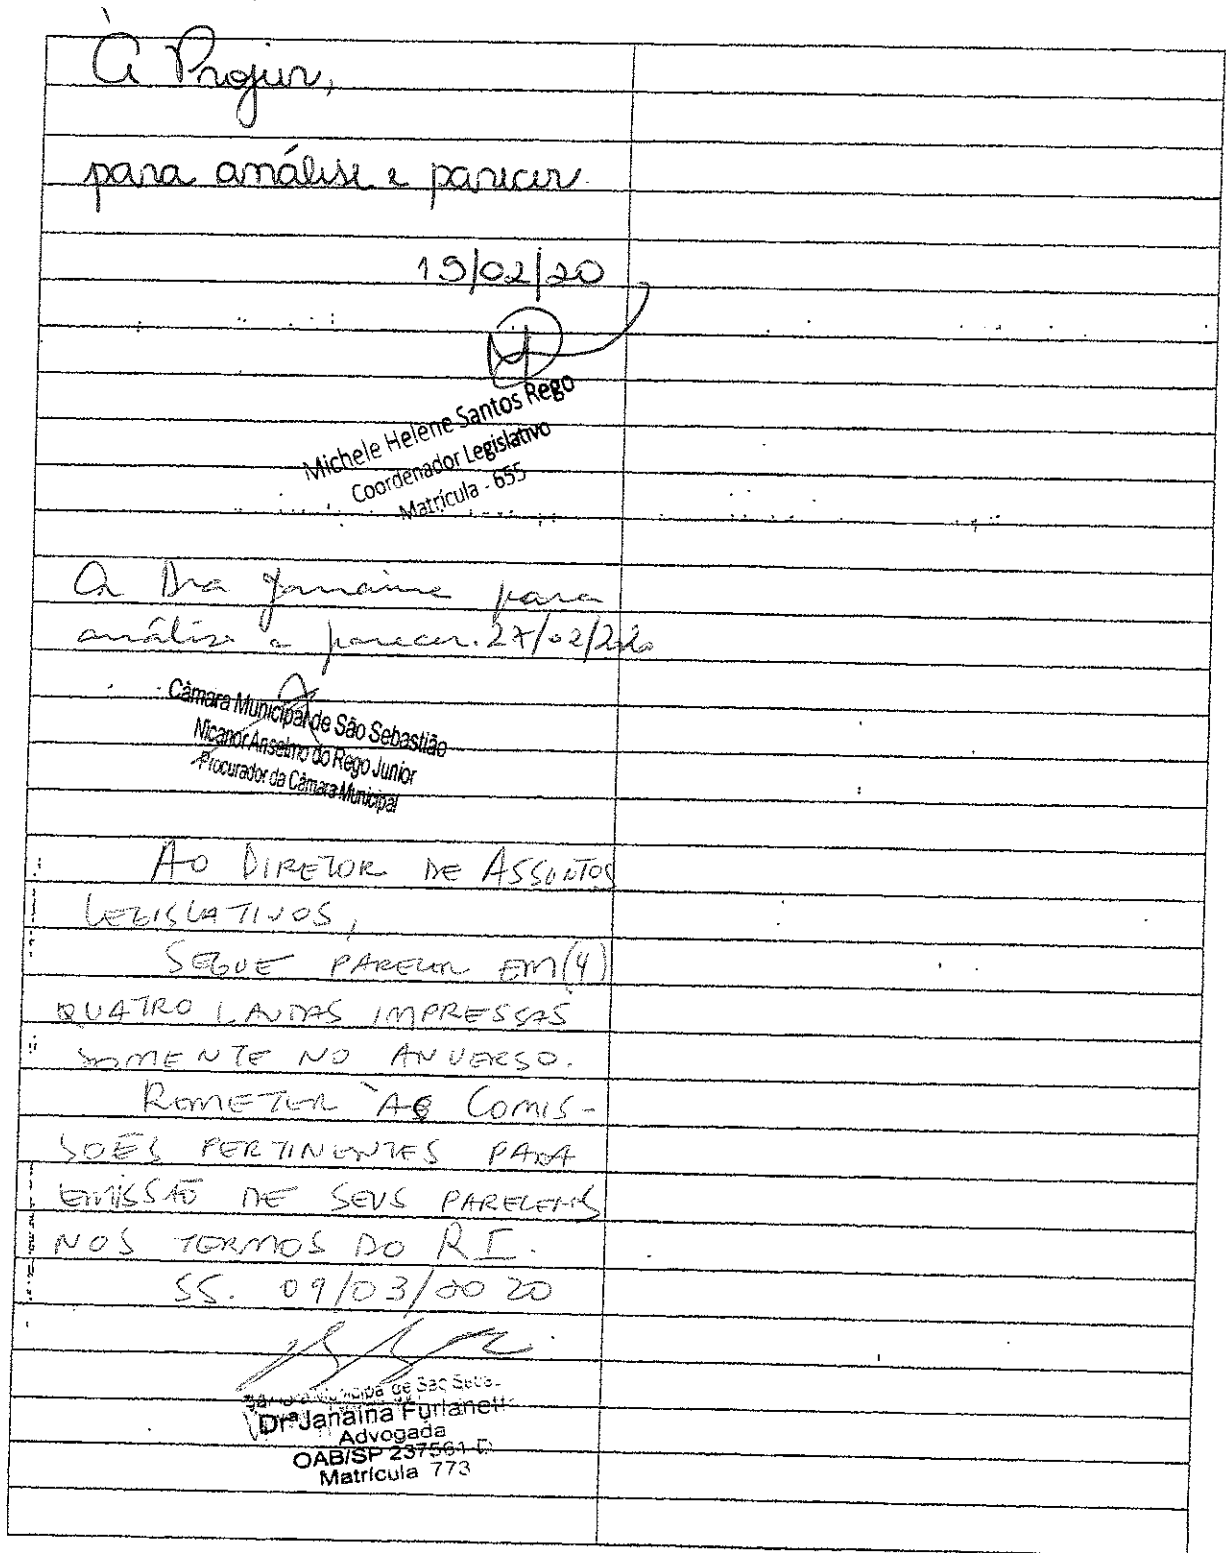 À Projur,
para análise e parecer.
19/02/20
Michele Helene Santos Rego
Coordenador Legislativo
Matrícula - 655
A Dra Janaina para
análise e parecer. 27/02/2020
Câmara Municipal de São Sebastião
Nicanor Anselmo do Rego Junior
Procurador da Câmara Municipal
AO DIRETOR DE ASSUNTOS
LEGISLATIVOS,
SEGUE PARECER EM (4)
QUATRO LAUDAS IMPRESSAS
SOMENTE NO ANVERSO.
REMETER ÀS COMIS-
SÕES PERTINENTES PARA
EMISSÃO DE SEUS PARECERES
NOS TERMOS DO R.I.
SS. 09/03/2020
Municipal de São
Drª Janaina Furlanett
Advogada
OAB/SP 237561-D
Matrícula 773